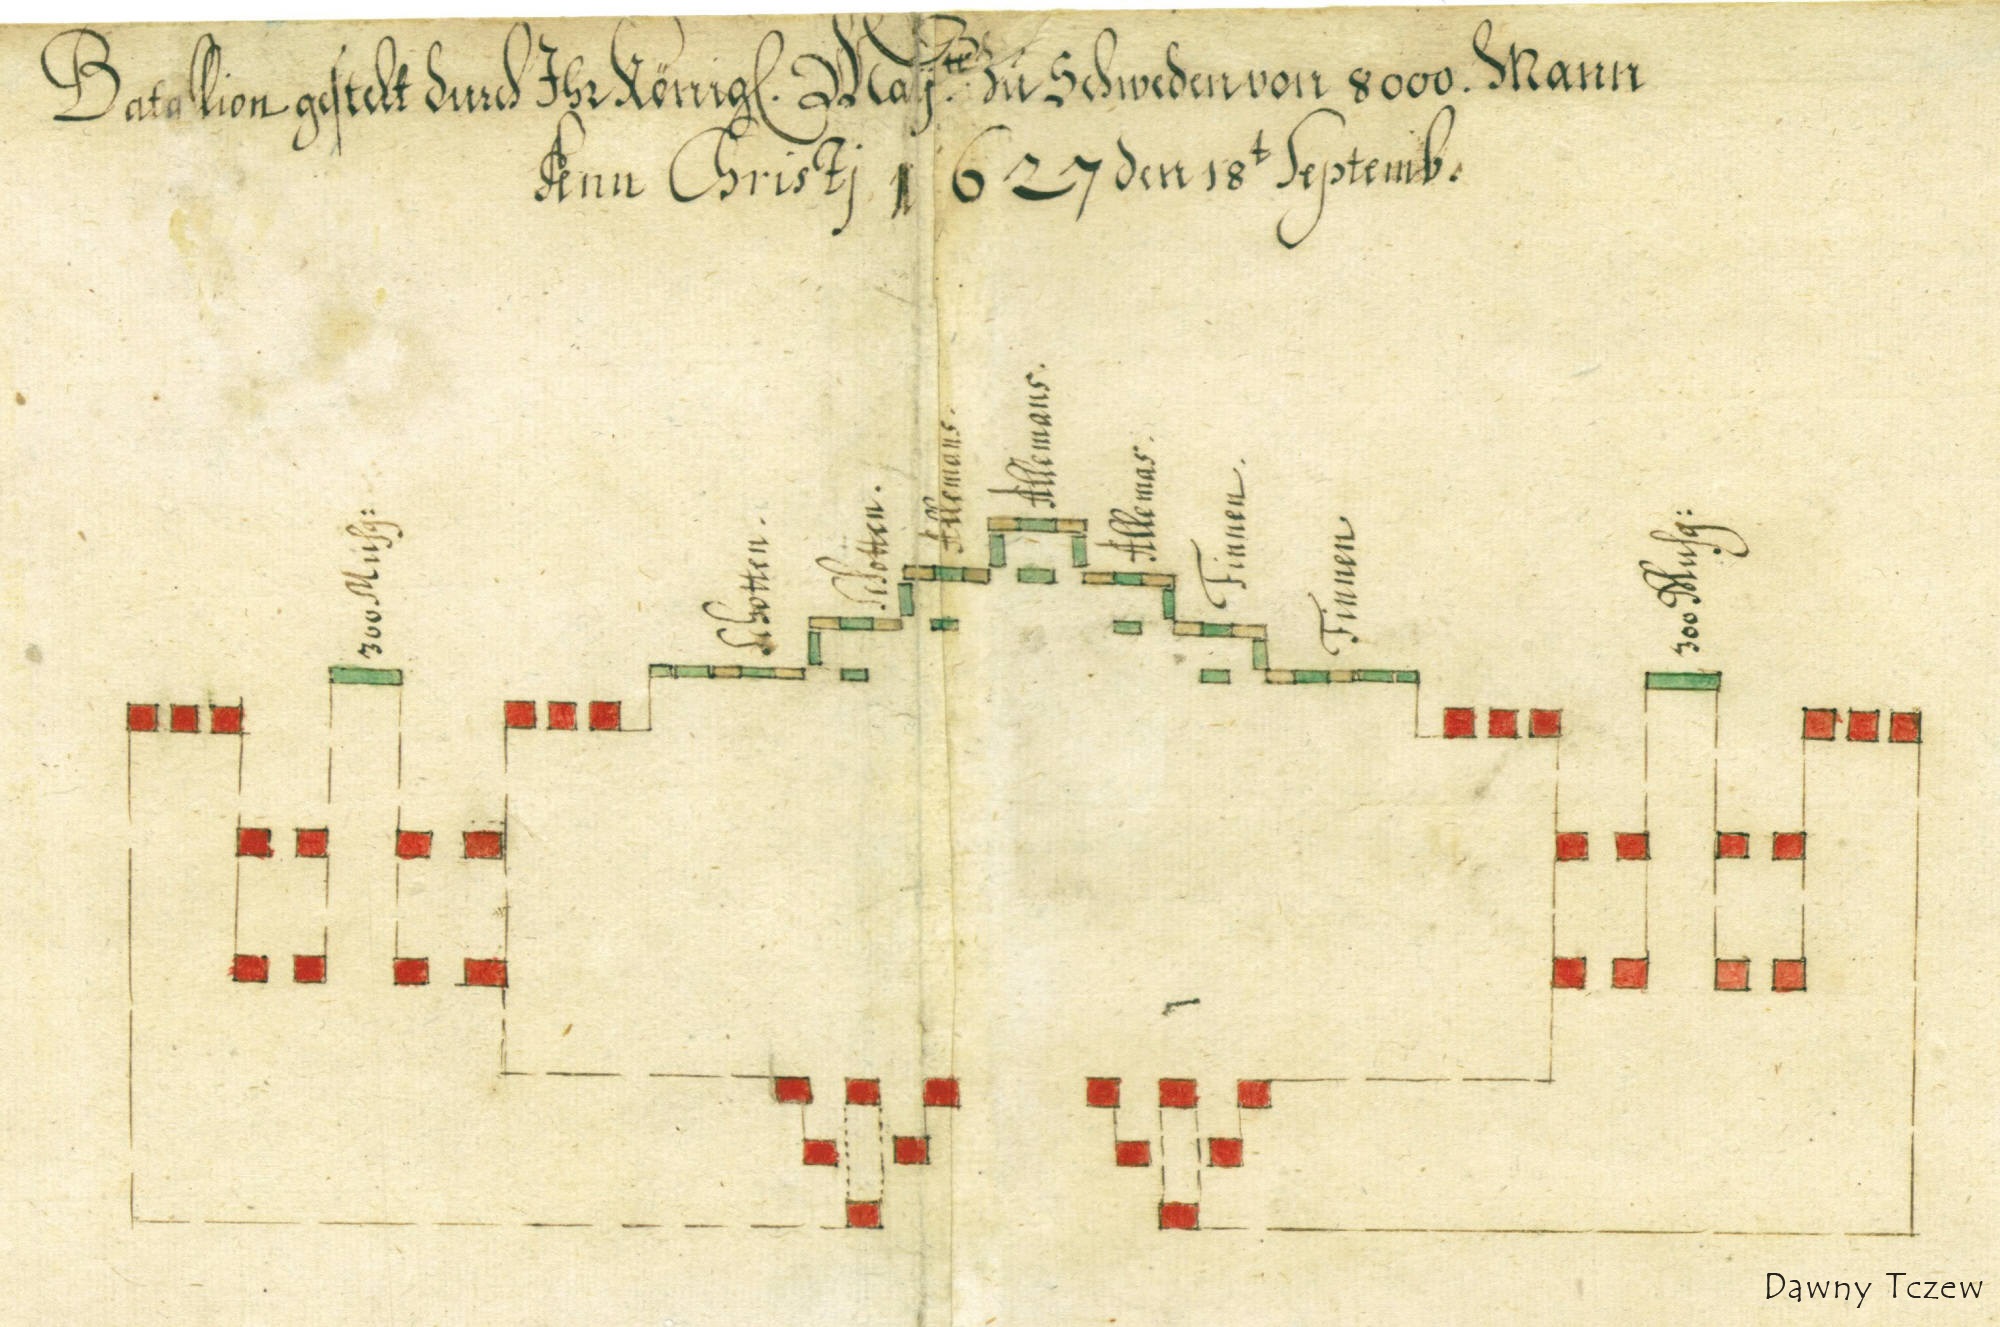 Batallion gestelt durch Ihr Königl. Maij.tet zu Schweden von 8000. Mann
Ann Christj 1627 den 18t Septemb.
300 Musq:
Schotten.
Schotten.
Allemans.
Allemans.
Allemas.
Finnen.
Finnen
300 Musq:
Dawny Tczew